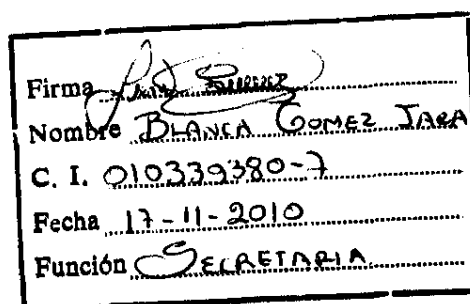 Firma
Nombre BLANCA GOMEZ JARA
C. I. 010339380-7
Fecha 17-11-2010
Función SECRETARIA